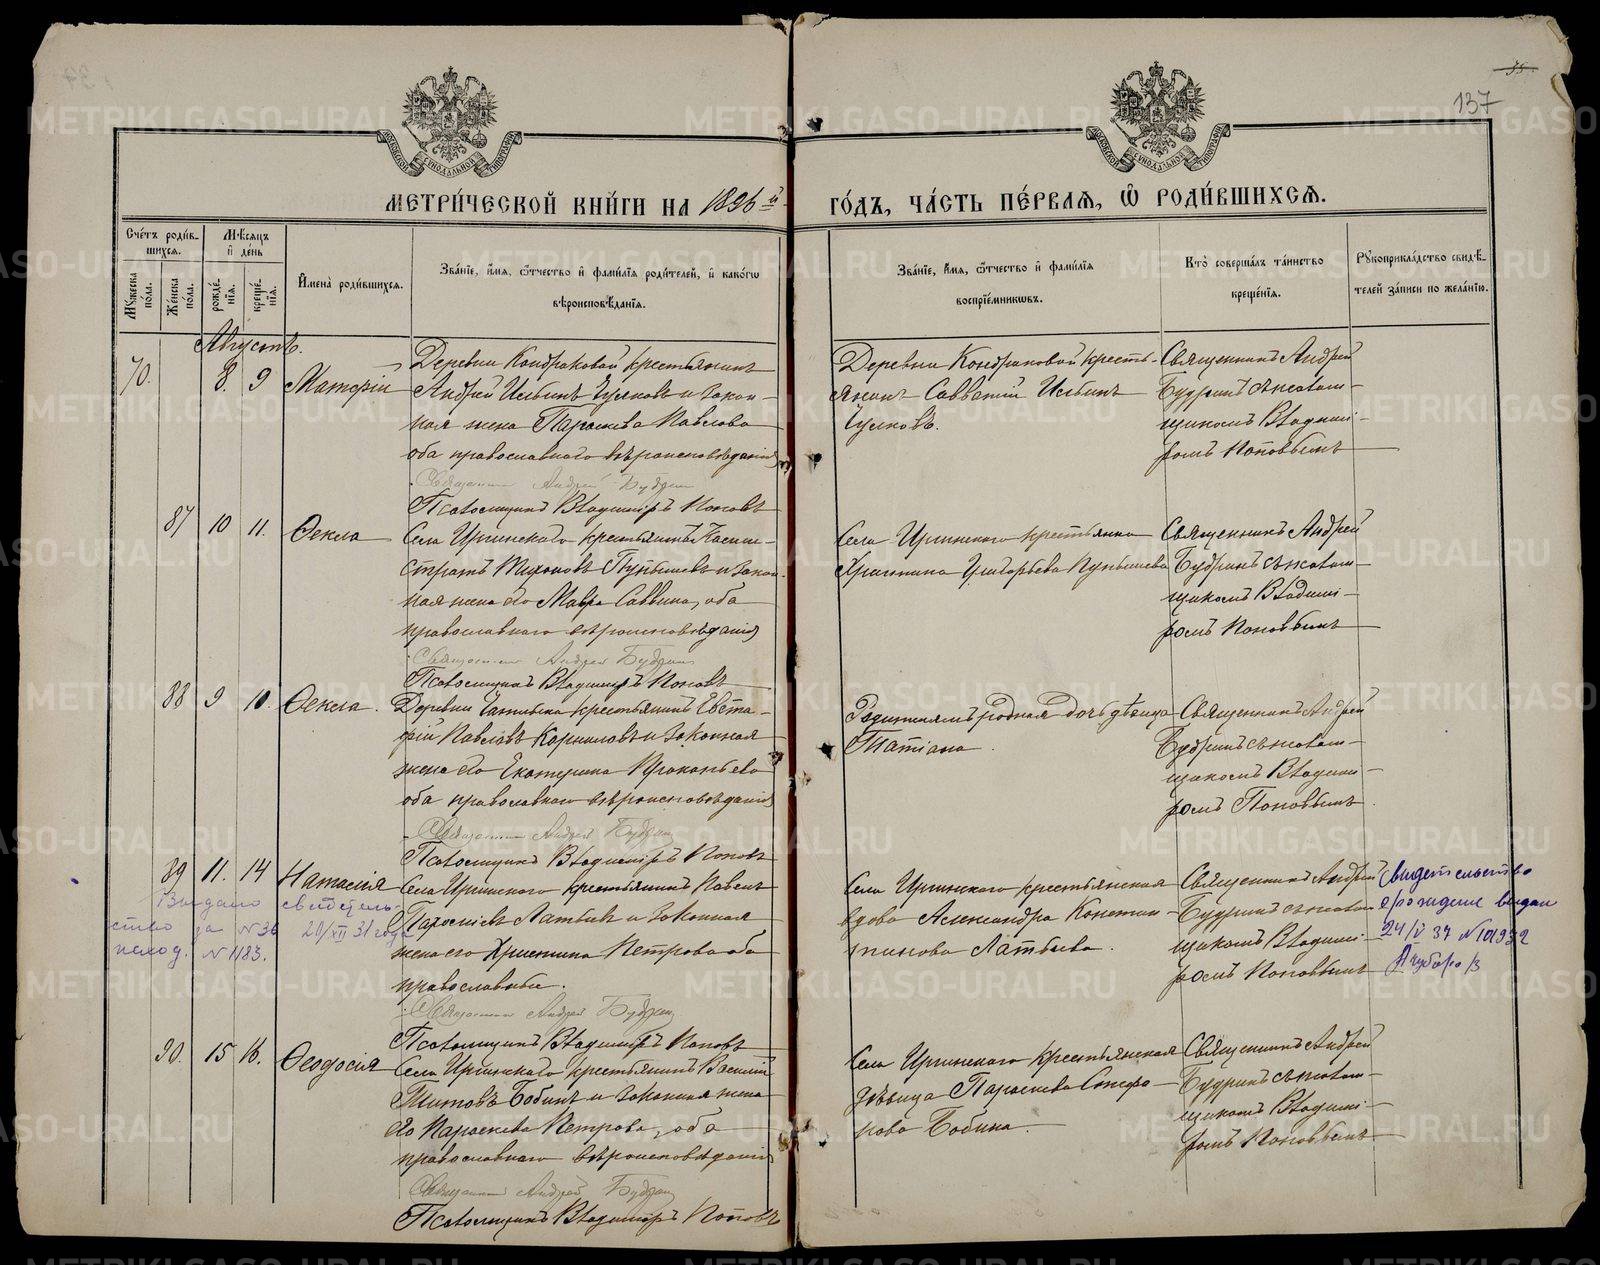 137
МЕТРИ́ЧЕСКОЙ КНИ́ГИ НА 1896 й
ГО́ДЪ, ЧА́СТЬ ПЕ́РВАѦ, Ѿ РОДИ́ВШИХСѦ.
Сче́тъ роди́в-
шихсѧ.
Мꙋжеска по́ла.
Же́нска по́ла.
Мѣ́сѧцъ и҆ де́нь
рожде́нїѧ.
креще́нїѧ.
И҆мена̀ роди́вшихсѧ.
Зва́нїе, и҆́мѧ, ѻ҆́тчество и҆ фами́лїѧ роди́телей, и҆ како́гѡ
вѣроисповѣ́данїѧ.
Зва́нїе, и҆́мѧ, ѻ҆́тчество и҆ фами́лїѧ
воспрїе́мникѡвъ.
Кто̀ соверша́лъ та́инство
креще́нїѧ.
Рꙋкоприкла́дство свидѣ́-
телей за́писи по жела́нїю.
Августъ.
70. 8. 9
Деревни Кондраковой крестьянинъ
Андрей Ильинъ Чулковъ и закон-
ная жена Параскева Павлова
оба православнаго вѣроисповѣданія
Священникъ Андрей Будринъ
Псаломщикъ Владиміръ Поповъ
Деревни Кондраковой кресть-
янинъ Савватій Ильинъ
Чулковъ.
Священникъ Андрей
Будринъ съ псалом-
щикомъ Владимі-
ромъ Поповымъ
87 10 11. Ѳекла
Села Иргинскаго крестьянинъ Каллис-
стратъ Тихоновъ Пупышевъ и закон-
ная жена его Мавра Саввина, оба
православнаго вѣроисповѣданія
Священникъ Андрей Будринъ
Псаломщикъ Владиміръ Поповъ
Села Иргинскаго крестьянка
Христина Григорьева Пупышева
Священникъ Андрей
Будринъ съ псалом-
щикомъ Владимі-
ромъ Поповымъ
88 9 10. Ѳекла.
Деревни крестьянинъ Евста-
фій Павловъ Корниловъ и законная
жена его Екатерина Прокопьева
оба православнаго вѣроисповѣданія
Священникъ Андрей Будринъ
Псаломщикъ Владиміръ Поповъ
Родителямъ родная дочь дѣвица
Татіана.
Священникъ Андрей
Будринъ съ псалом-
щикомъ Владимі-
ромъ Поповымъ.
89 11. 14 Наталія
Выдано свидетель-
ство за №36 20/XII 31 года
№1183.
Села Иргинскаго крестьянинъ Павелъ
Латыевъ и законная
жена его Христина Петрова оба
православные.
Священникъ Андрей Будринъ
Псаломщикъ Владиміръ Поповъ
Села Иргинскаго крестьянская
вдова Александра Констан-
тинова Латыева.
Священникъ Андрей
Будринъ съ псалом-
щикомъ Владимі-
ромъ Поповымъ
Свидетельство
о рождение выдан
24/V 37
90. 15 16. Ѳеодосія
Села Иргинскаго крестьянинъ Василій
Титовъ Бобинъ и законная жена
его Параскева Петрова, оба
православнаго вѣроисповѣданія
Священникъ Андрей Будринъ
Псаломщикъ Владиміръ Поповъ
Села Иргинскаго крестьянская
дѣвица Параскева Стефа-
нова Бобина.
Священникъ Андрей
Будринъ съ псалом-
щикомъ Владимі-
ромъ Поповымъ
METRIKI.GASO-URAL.RU